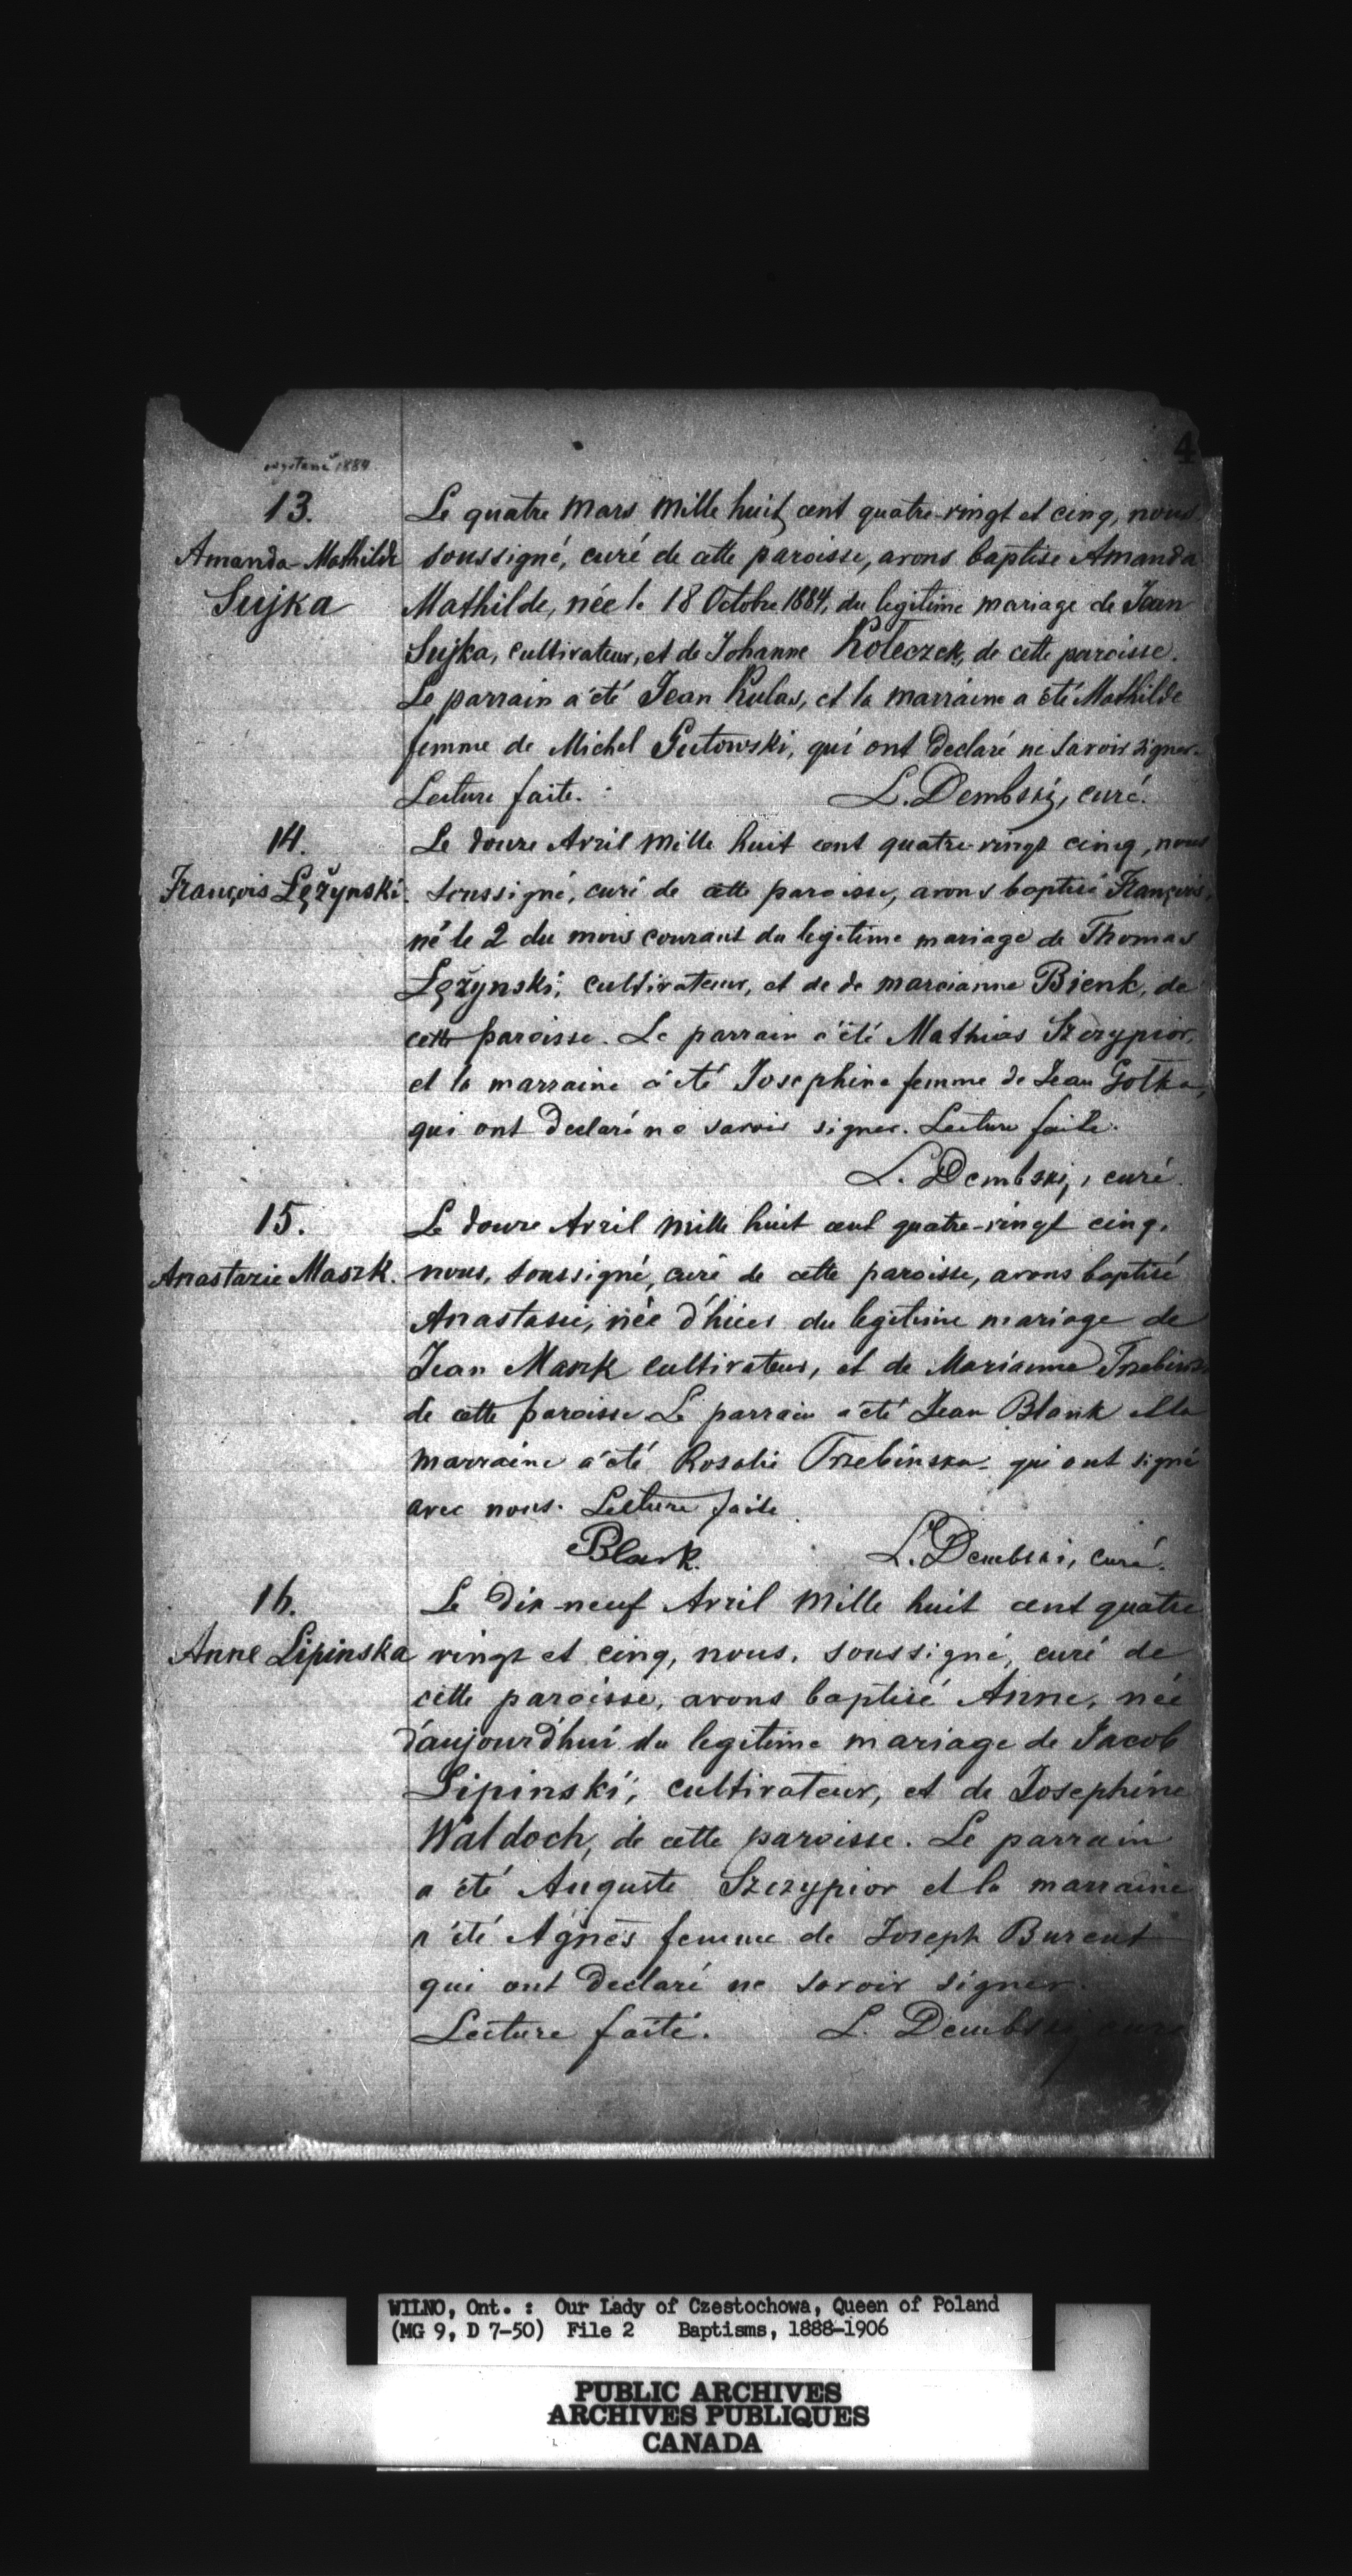 4
1884
13.
Amanda-Mathilde
Sujka
Le quatre Mars Mille huit cent quatre-vingt et cinq, nous
soussigné, curé de cette paroisse, avons baptise Amanda
Mathilde, née le 18 Octobre 1884, du legitime mariage de Jean
Sujka, cultivateur, et de Johanne Koleczek, de cette paroisse.
Le parrain a été Jean Kulas, et la marraine a été Mathilde
femme de Michel Gutowski, qui ont declaré ne savoir signer.
Lecture faite. L. Dembski, curé.
14.
François Lężynski.
Le douze Avril Mille huit cent quatre-vingt cinq, nous
soussigné, curé de cette paroisse, avons baptisé François,
né le 2 du mois courant du legitime mariage de Thomas
Lężynski, cultivateur, et de de marcianne Bienk, de
cette paroisse. Le parrain a été Mathias Szczypior,
et la marraine a été Josephine femme de Jean Golka,
qui ont declaré ne savoir signer. Lecture faite.
L. Dembski, curé.
15.
Anastazie Maszk.
Le douze Avril Mille huit cent quatre-vingt cinq,
nous, soussigné, curé de cette paroisse, avons baptisé
Anastasie, née d'hier du legitime mariage de
Jean Maszk cultivateur, et de Marianna
de cette paroisse Le parrain a été Jean Blank et la
marraine a été Rosalie Trzebinska qui ont signé
avec nous. Lecture faite.
Blank. L. Dembski, curé.
16.
Anne Lipinska
Le dix-neuf Avril Mille huit cent quatre
vingt et cinq, nous, soussigné, curé de
cette paroisse, avons baptisé Anne, née
d'aujourd'hui du legitime mariage de Jacob
Lipinski, cultivateur, et de Josephine
Waldoch, de cette paroisse. Le parrain
a été Auguste Szczypior et la marraine
a été Agnès femme de Joseph Burent
qui ont declaré ne savoir signer.
Lecture faite. L. Dembski curé
WILNO, Ont. : Our Lady of Czestochowa, Queen of Poland
(MG 9, D 7-50) File 2 Baptisms, 1888-1906
PUBLIC ARCHIVES
ARCHIVES PUBLIQUES
CANADA